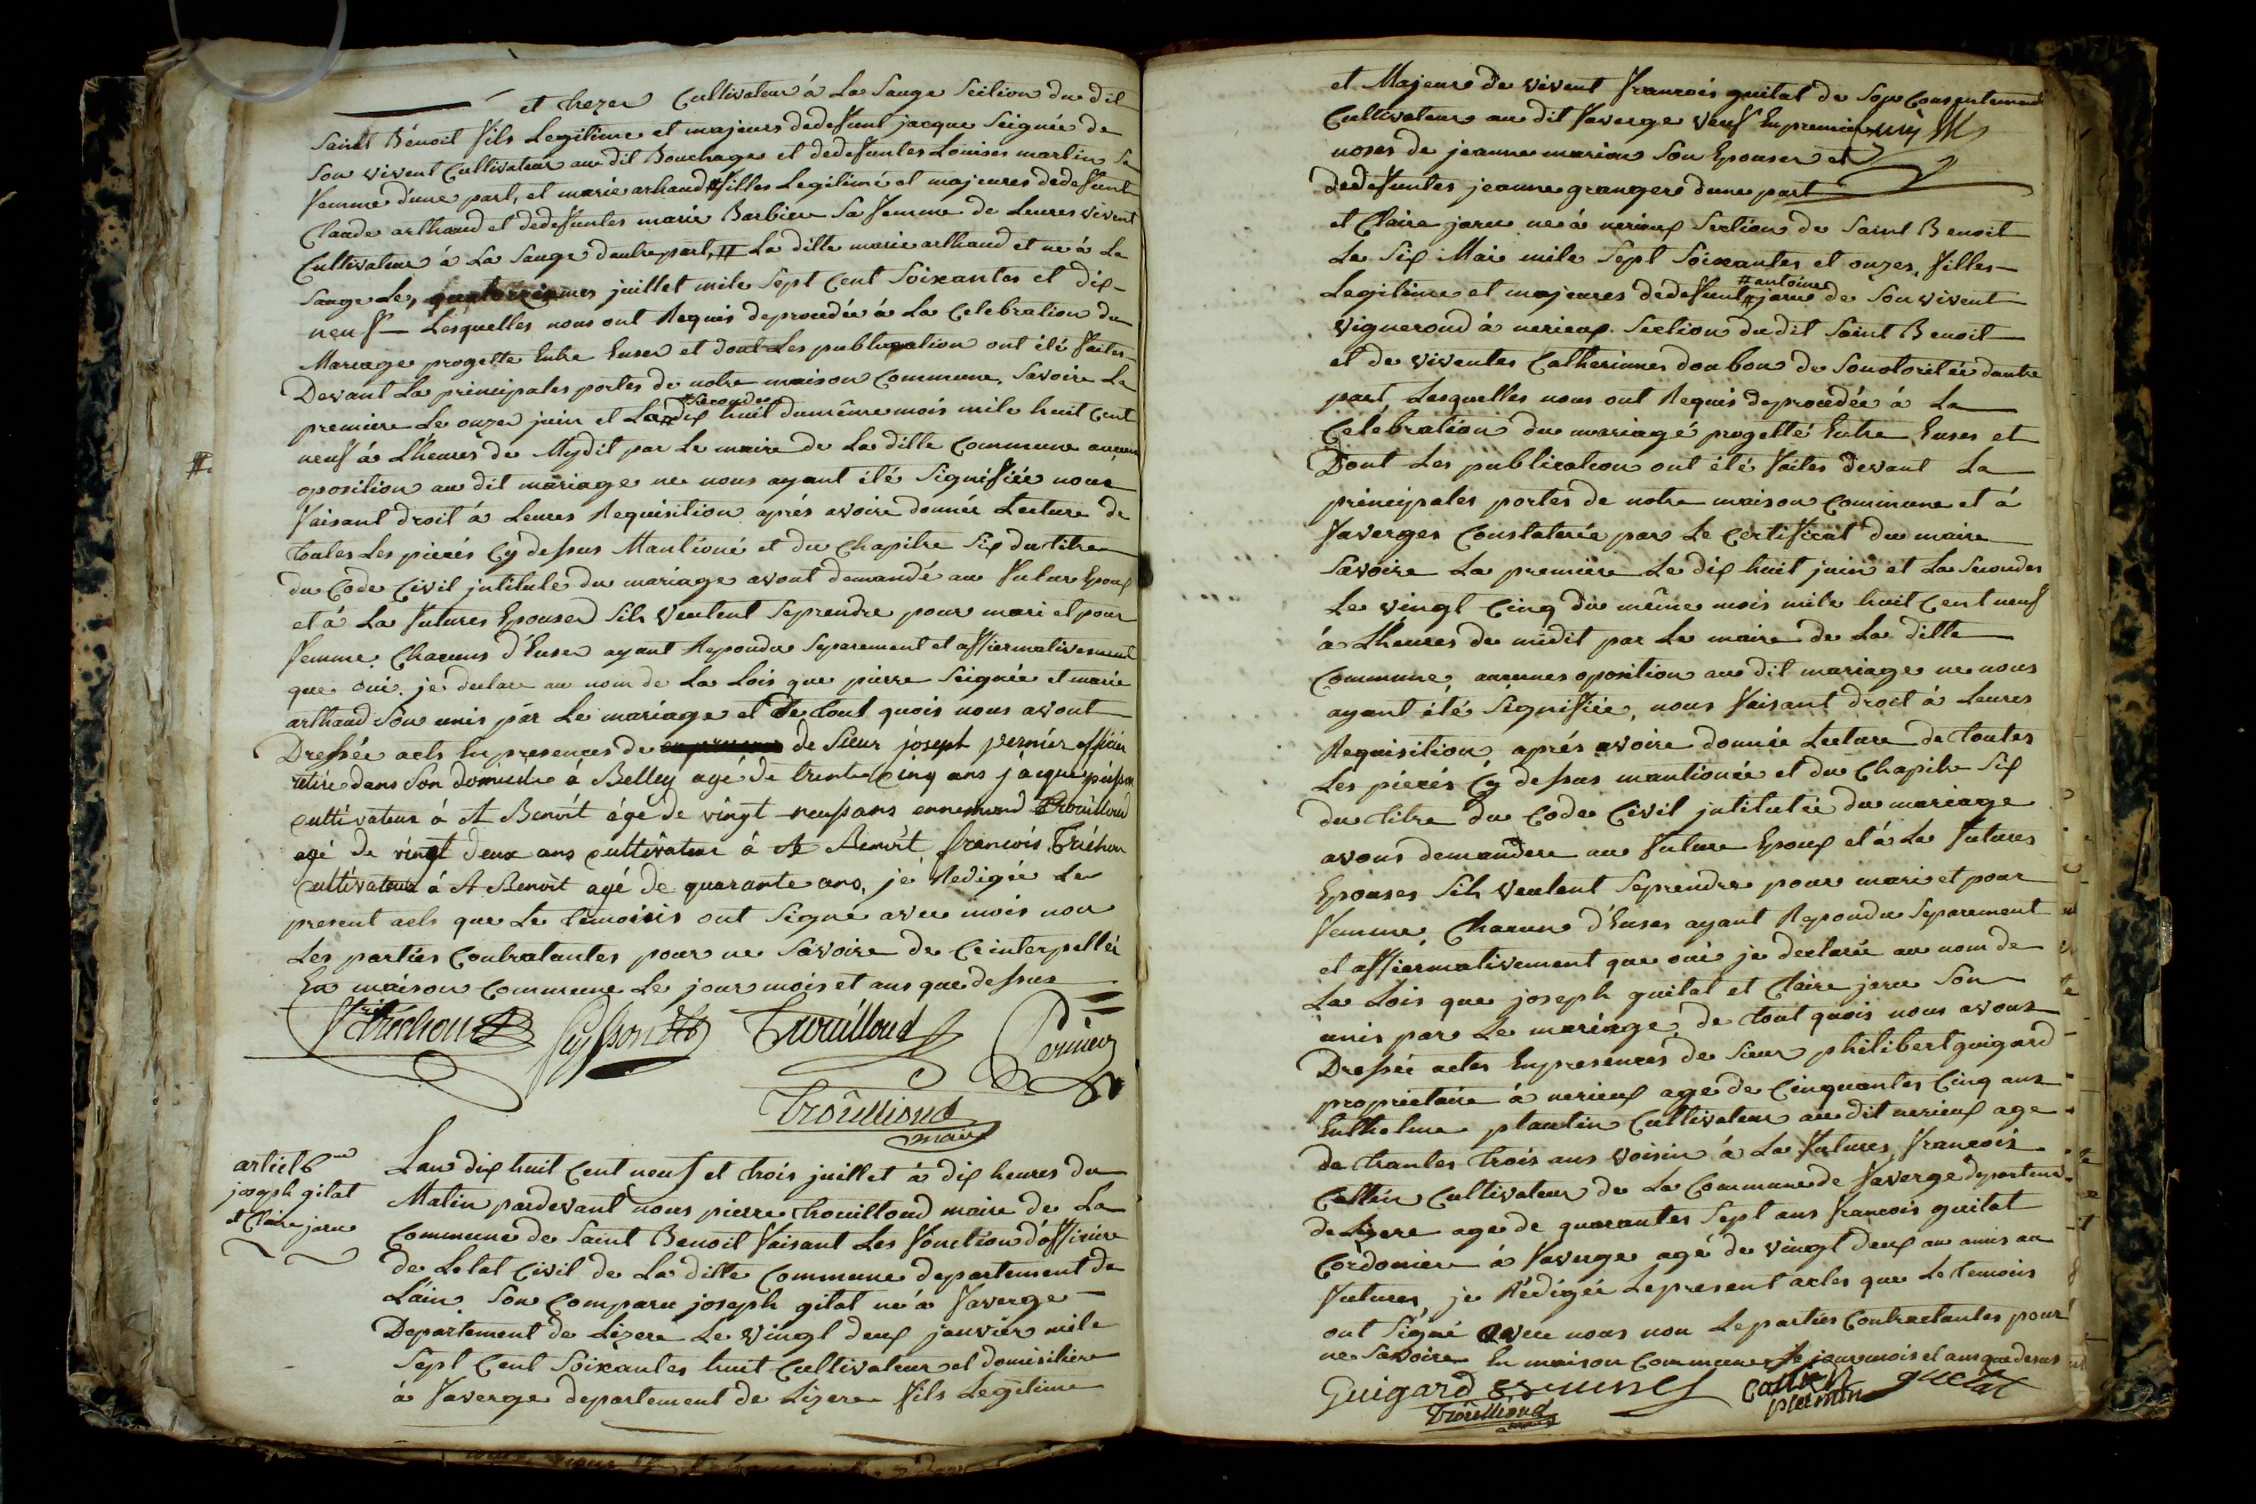 et hezer Cultivateur á La Sauge Section du dit
Saint Bénoit fils Legitime et majeurs dedefunt jacque Seignée de
Son vivent Cultivateur au dit Bouchage et dedefuntes Louises martin Sa
femme d'une part, et marie arhaud filles Legitimé et majeures dedefunt
Claude arthaud et dedefuntes marie Barbiere Sa femme de Leures vivent
Cultivateur á La Sauge dautrepart, # La ditte marie arthaud et ne á La
Sauge Le, juillet mile Sept Cent Soixantes et dix-
neuf — Lesquelles nous ont Requis deprocedée á La Celebration du
Mariage progette Entre Euser et dont Les publication ont été faites
Devant La principales portes de notre maison Commune, Savoire La
premiere Le onze juin et La # #Secondes dix huit dumême mois mile huit Cent
neuf á Lheures de Mydit par Le maire de La ditte Commune aucunes
#.
oposition au dit mariage ne nous ayant été Signifiée nous
faisant droit á Leures Requisition aprés avoire donnée Lecture de
toutes Les pieces Cy dessus Mantioné et du Chapitre Six du titre
du Code Civil jntitulé du mariage avont demandé au futur Epoux
et á La futures Epouser Sils veulent Seprendre pour mari et pour
femme. Chacuns d'Euser ayant Repondu Separement et affiermativement
que oui. je declare au nom de La Lois que pierre Seignée et marie
arthaud Son unis par Le mariage et De tout quois nous avont
Dressée acts En presences de de Sieur josept Pernier officier
retire dans Son domicile á Belley agé de trente Cinq ans jacque pusson
cultivateur á St Benoit ágé de vingt neuf ans ennemond Trouilloud
agé De vingt deux ans cultivateur á St Benoit francois Tréchon
Cultivateur á St Benoit agé de quarante ans, je Redigée Le
present acts que Le temoisis ont Signé avec mois non
Les parties Contratantes pour ne Savoire de Ceinterpellée
En maison Commune Le jour mois et ans que dessus
Tréchon Pusson Trouilloud Pernier
Trouilloud
maire
articl 6me
joseph gitat
et Claire jaru
Lan dix huit Cent neuf et trois juillet á dix heures du
Matin pardevant nous pierre trouilloud maire de La
Commune de Saint Benoit faisant Les fonction d'officier
de Letat Civil de La ditte Commune departement de
Lain Son Comparu joseph gitat né á faverge
Departement de Lizere Le vingt deux janvier mile
Sept Cent Soixantes huit Cultivateur et domisiliere
á faverge departement de Lizere fils Legitime
et Majeure de vivent francois guitat de Son Consentement
Cultivateur au dit faverge veuf En premiere
noses de jeanne marion Son Epouser et
dedefuntes jeanne granger dune part
et Claire jaru né á nerieux Section de Saint Benoit
Le Six Mai mile Sept Soixantes et onzes, filles
Legitime et majeures dedefunt # #antoine jarus de Son vivent
vigneroud á nerieux Section du dit Saint Benoit
et de viventes Catherinnes doubon de Sonotoritée dautre
part, Lesquelles nous ont Requis deprocedée á La
Celébration du mariagé progetté Entre Euses et
Dont Les publication ont été faites devant La
principales portes de notre maison Commune et á
faverges Constaterée par Le Certificat du maire
Savoire La premiere Le dix huit juin et La Secondes
Le vingt Cinq du même mois mile huit Cent neuf
á Lheures de midit par Le maire de La ditte
Commune, aucunes oposition au dit mariage ne nous
ayant été Signifiée, nous faisant droit á Leures
Requisition aprés avoire donnée Lecture de toutes
Les pieces Cy dessus mantionée et du Chapitre Six
du titre du Code Civil jntitulée du mariage
avons demandere au future Epoux et á La futures
Epouses Sils veulent Seprendre pour mari et pour
femme, Chacun d'Euses ayant Repondu Separement
et affiermativement que oui je declarée au nom de
La Lois que joseph guitat et Claire jaru Son
unis par Le mariage, de tout quois nous avons
Dressée actes Enpresences de Sieur philibert guigard
proprietaire á nerieux age de Cinquantes Cinq ans
Enthelme plantin Cultivateur au dit nerieux age
de trantes trois ans voisin á La futures, francois
Cattin Cultivateur de La Commune de faverge departement
de Lizere age de quarantes Sept ans francois guitat
Cordoniere á faverge agé de vingt deux an amis au
futures, je Rédigée Lepresent actes que Le temoins
ont Signé avec nous non Leparties Contractantes pour
ne Savoire En maison Commune Le jour mois et ans quedesus
Guigard Cattin guitat
Plantin
Trouilloud
maire